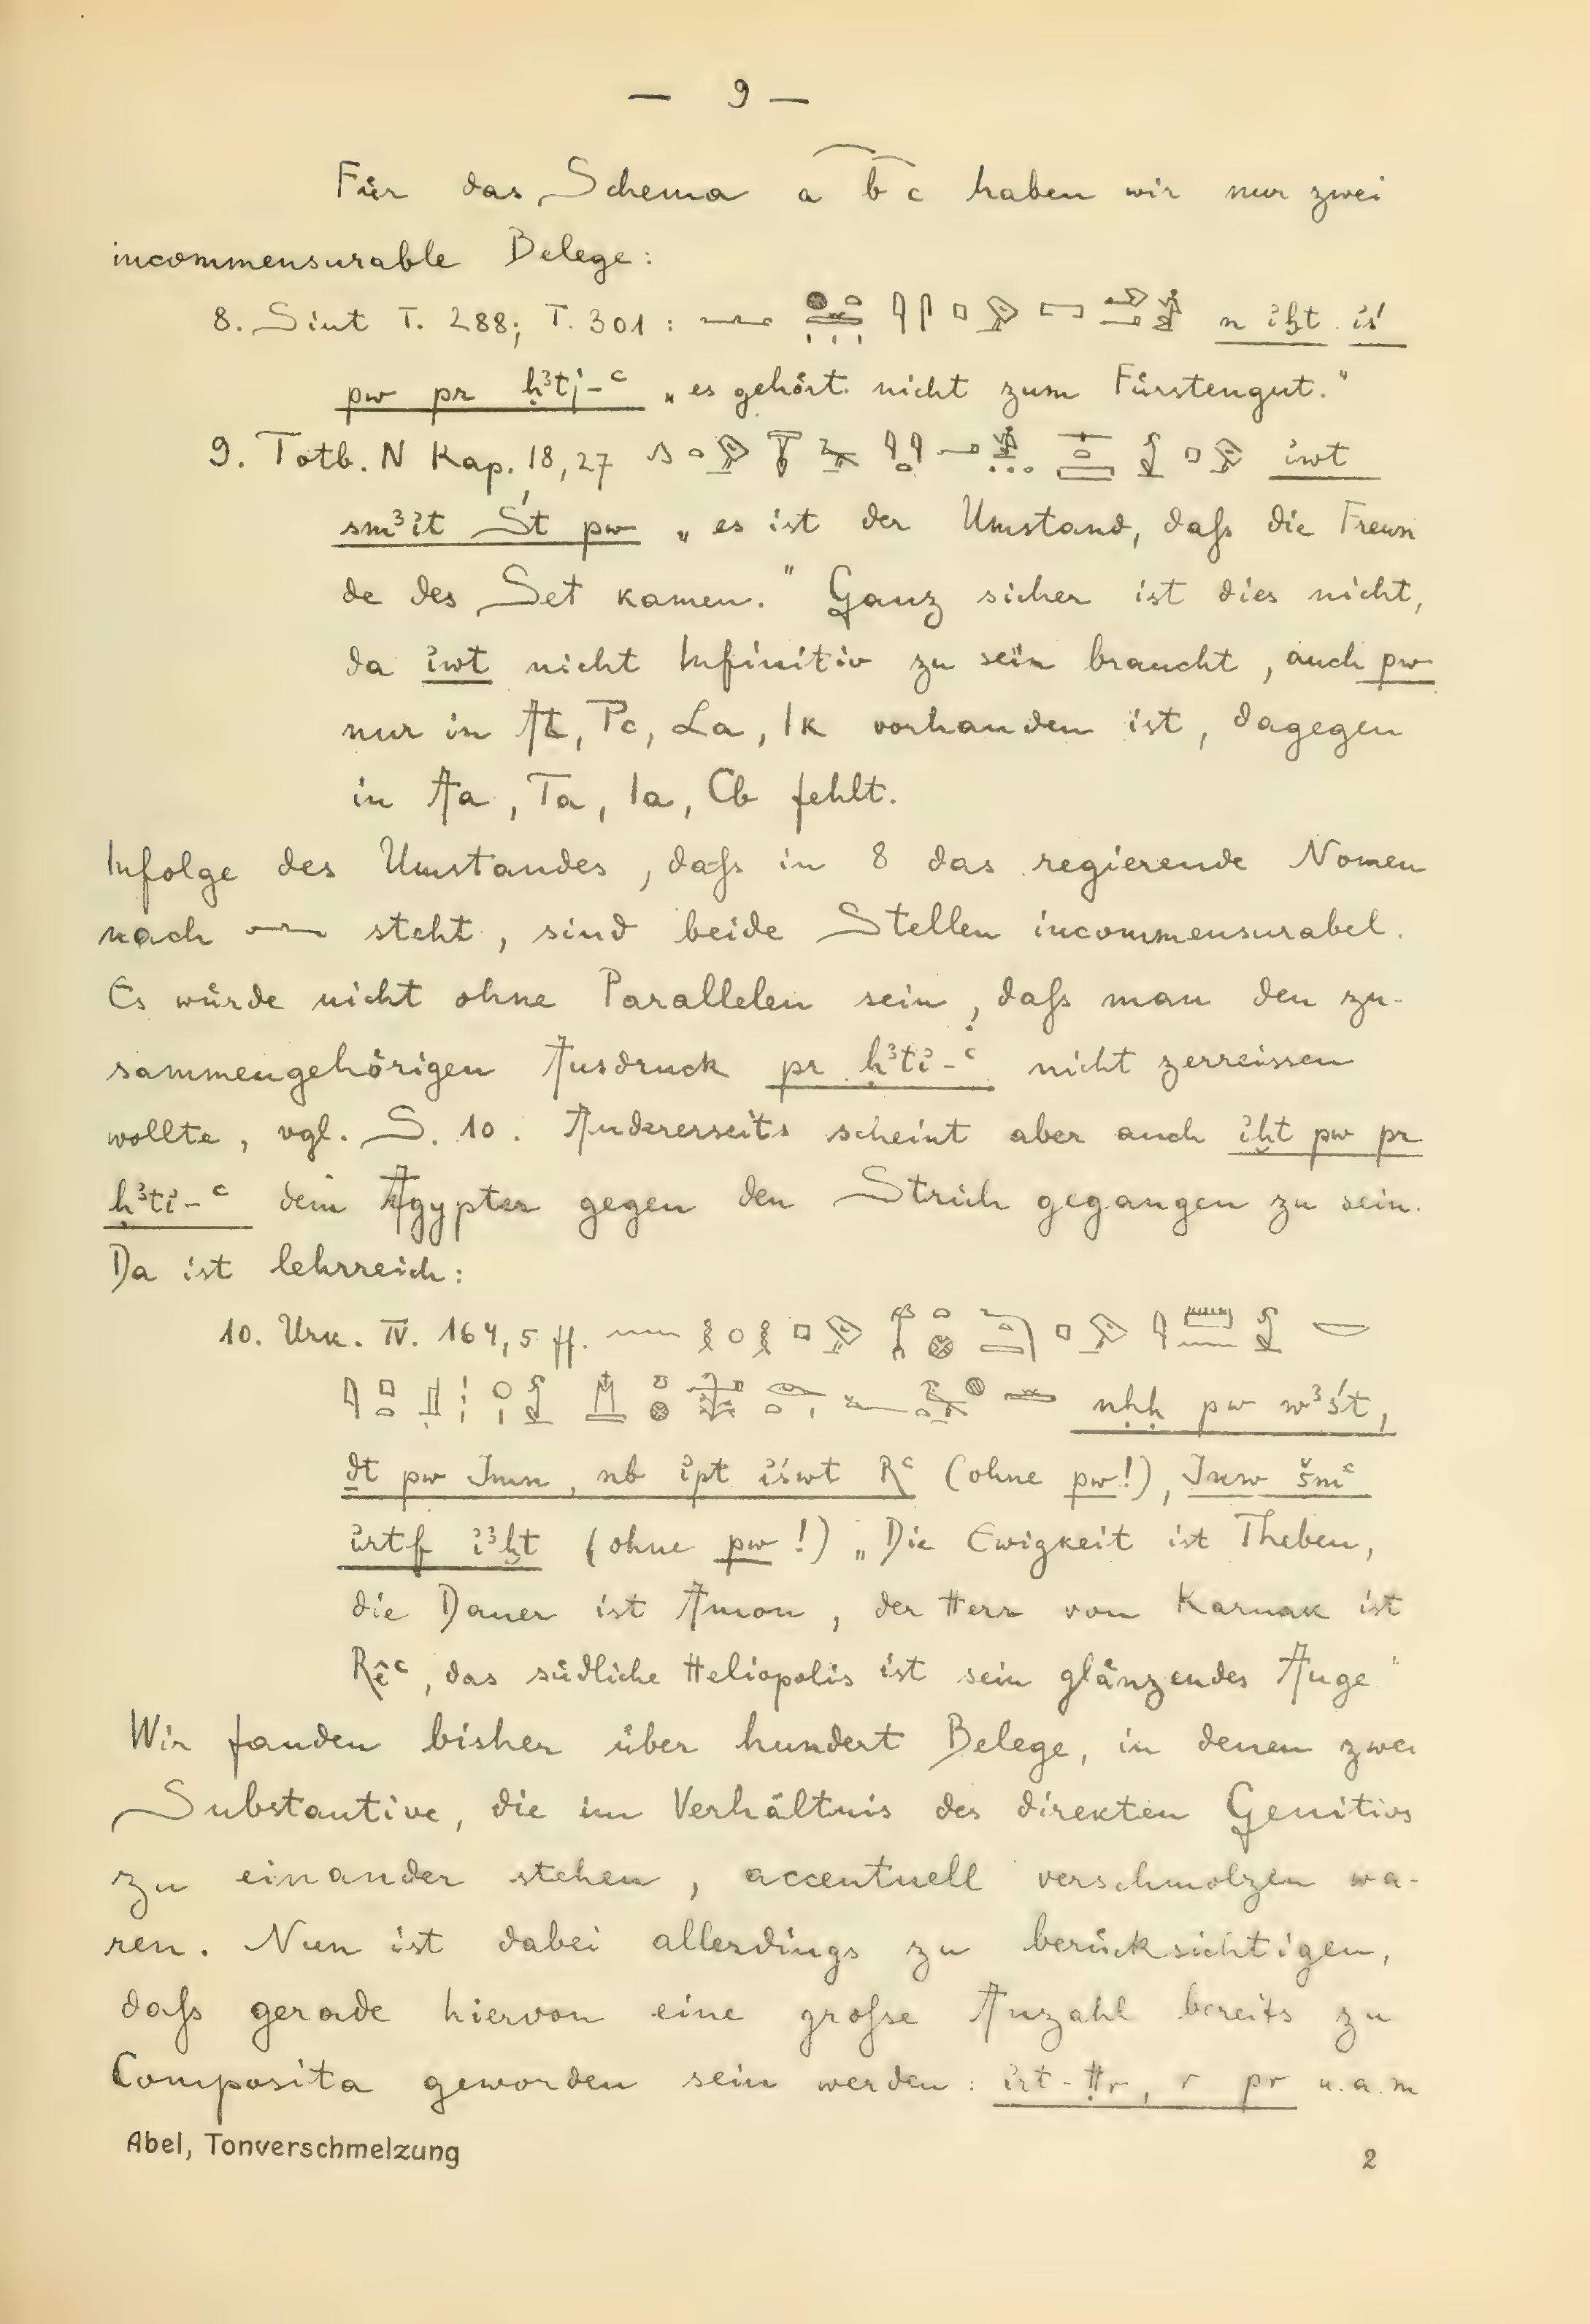 — 9 —
Für das Schema a b͡ c haben wir nur zwei
incommensurable Belege:
8. Siut T. 288; T. 301 : n ἰḫt iś
pw pr ḥ3tj-ʿ „es gehört nicht zum Fürstengut."
9. Totb. N Kap. 18, 27 ἰwt
sm3ἰt Śt pw „es ist der Umstand, daſs die Freun
de des Set kamen." Ganz sicher ist dies nicht,
da ἰwt nicht Infinitiv zu sein braucht, auch pw
nur in Pc, La, Ik vorhanden ist, dagegen
in Aa, Ta, Ia, Cb fehlt.
Infolge des Umstandes, daſs in 8 das regierende Nomen
nach 𓈖 steht, sind beide Stellen incommensurabel.
Es würde nicht ohne Parallelen sein, daſs man den zu-
sammengehörigen Ausdruck pr ḥ3tἰ-ʿ nicht zerreissen
wollte, vgl. S. 10. Andererseits scheint aber auch ἰḫt pw pr
ḥ3tἰ-ʿ dem Ägypter gegen den Strich gegangen zu sein.
Da ist lehrreich:
10. Urk. IV. 164, 5 ff.
nḥḥ pw w3śt,
ḏt pw Jmn, nb ἰpt ἰśwt Rʿ (ohne pw!), Jnw šmʿ
ἰrtf ἰ3ḫt (ohne pw!) „Die Ewigkeit ist Theben,
die Dauer ist Amon, der Herr von Karnak ist
Rêʿ, das südliche Heliopolis ist sein glänzendes Auge"
Wir fanden bisher über hundert Belege, in denen zwei
Substantive, die im Verhältnis des direkten Genitivs
zu einander stehen, accentuell verschmolzen wa-
ren. Nun ist dabei allerdings zu berücksichtigen,
daſs gerade hiervon eine groſse Anzahl bereits zu
Composita geworden sein werden: ἰrt-Ḥr, r pr u.a.m
Abel, Tonverschmelzung 2